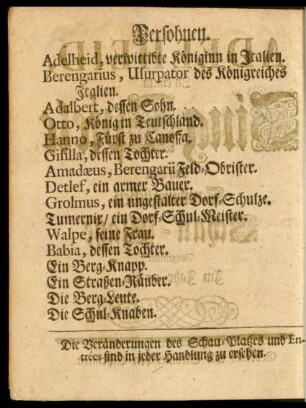 Persohnen.
Adelheid, verwittibte Königinn in Italien.
Berengarius, Usurpator des Königreiches
Italien.
Adalbert, dessen Sohn.
Otto, König in Teutschland.
Hanno, Fürst zu Canossa.
Gisilla, dessen Tochter.
Amadæus, Berengarii Feld-Obrister.
Detlef, ein armer Bauer.
Grolmus, ein ungestalter Dorf-Schulze.
Tumernix/ ein Dorf-Schul-Meister.
Walpe, seine Frau.
Babia, dessen Tochter.
Ein Berg-Knapp.
Ein Straßen-Räuber.
Die Berg-Leute.
Die Schul-Knaben.
Die Veränderungen des Schau-Platzes und En-
trées sind in jeder Handlung zu ersehen.